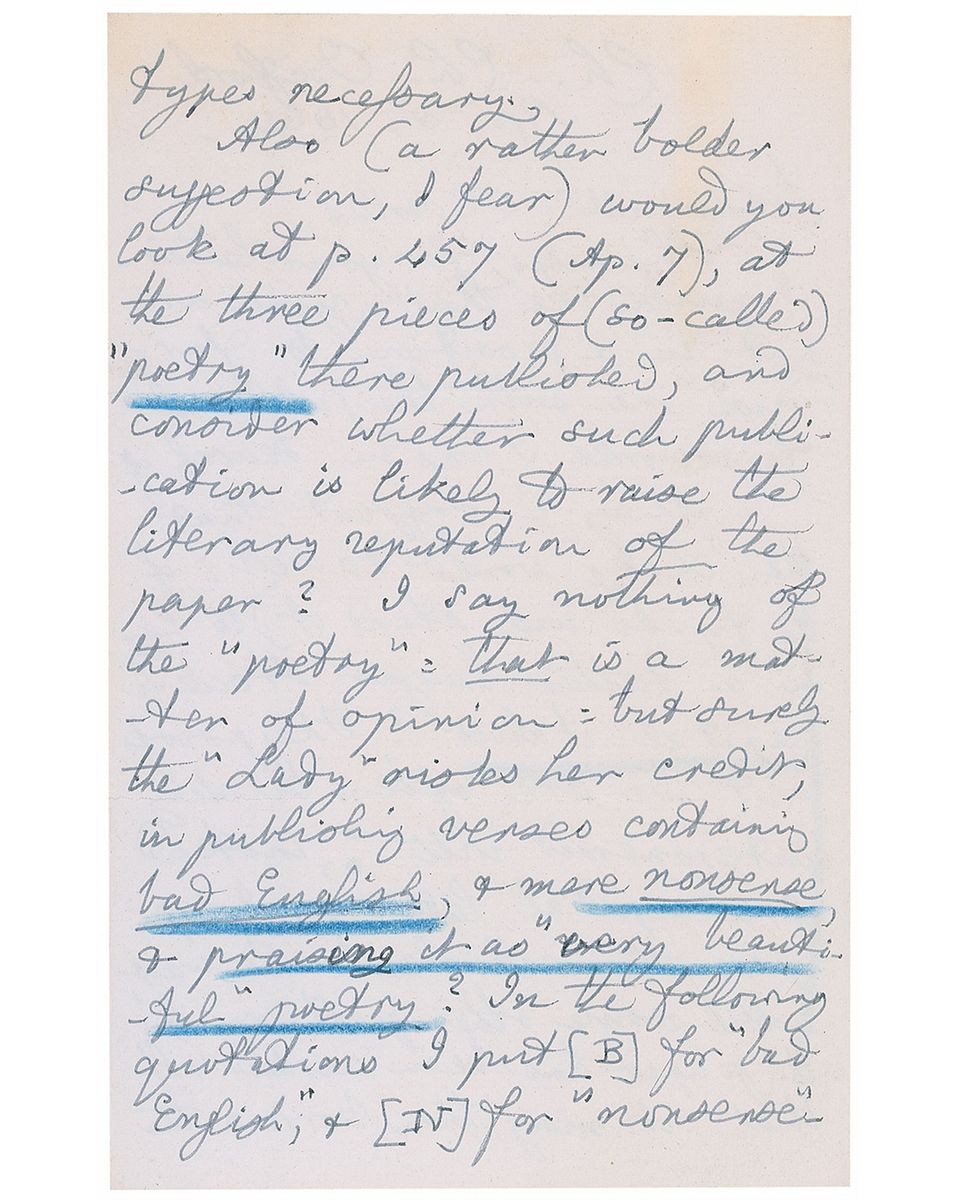 types necessary.
Also (a rather bolder
suggestion, I fear) would you
look at p. 457 (Ap. 7), at
the three pieces of (so-called)
"poetry" there published, and
consider whether such publi-
-cation is likely to raise the
literary reputation of the
paper? I say nothing of
the "poetry": that is a mat-
-ter of opinion: but surely
the "Lady" risks her credit,
in publishing verses containing
bad English, & mere nonsense,
& praising it as "very beauti-
-ful" poetry? In the following
quotations I put [B] for "bad
English," & [N] for "nonsense"